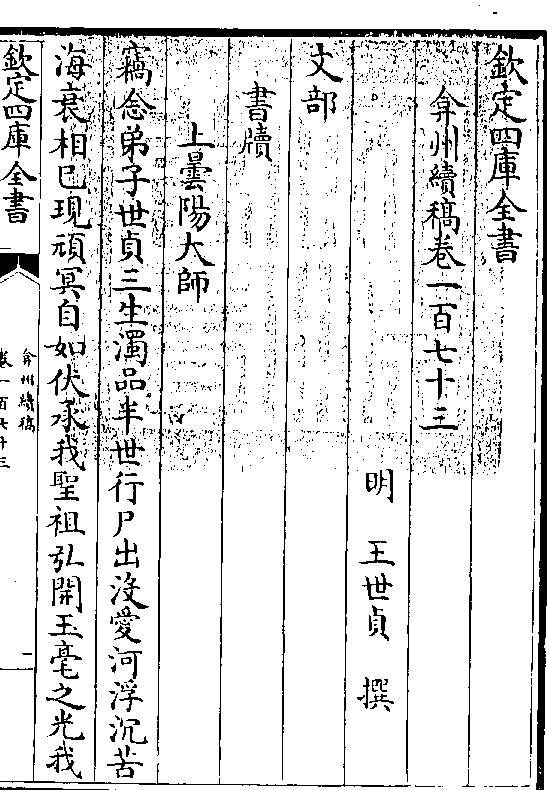 欽定四庫全書
弇州續稿卷一百七十三
明 王世貞 撰
文部
書牘
上曇陽大師
竊念弟子世貞三生濁品半世行尸出沒愛河浮沉苦
海衰相已現頑冥自如伏承我聖祖弘開玉毫之光我
欽定四庫全書
弇州續稿
卷一百七十三
一